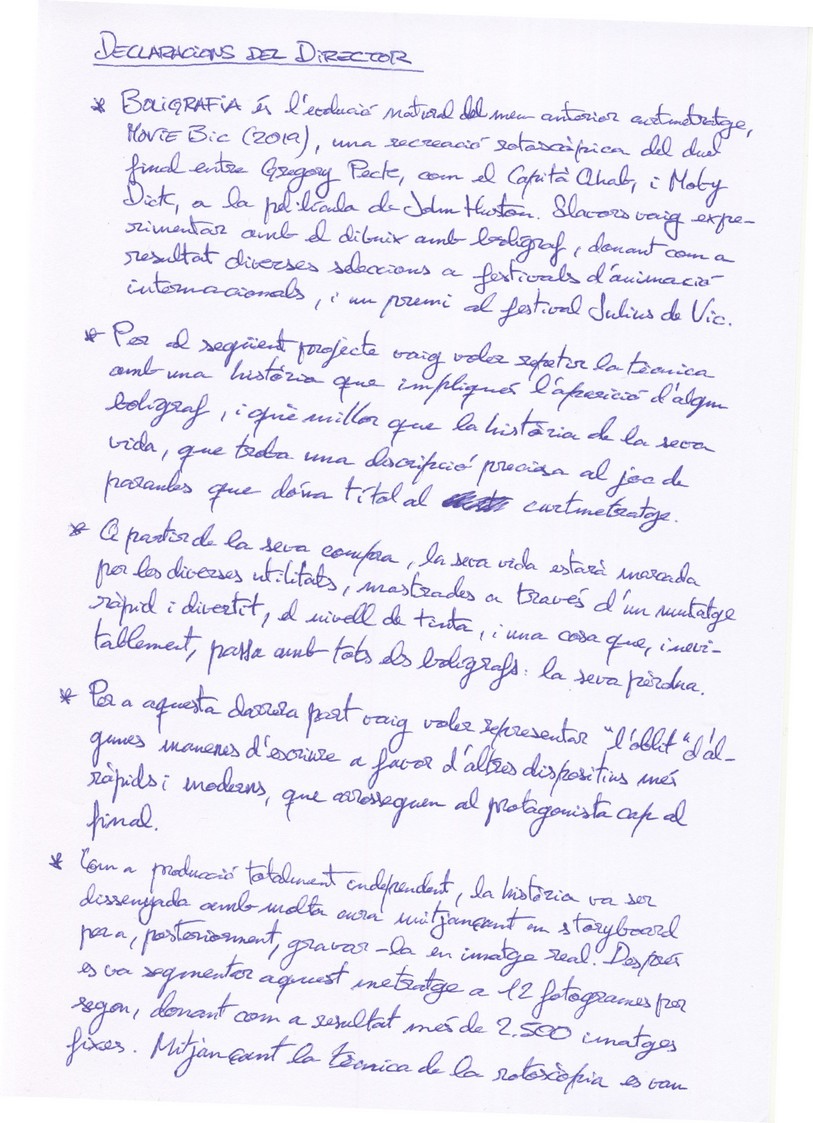 DECLARACIONS DEL DIRECTOR
* BOLIGRAFIA és l'evolució natural del meu anterior curtmetratge,
MOVIE BIC (2019), una recreació rotoscòpica del duel
final entre Gregory Peck, com el Capità Ahab, i Moby
Dick, a la pel·lícula de John Huston. Llavors vaig expe-
rimentar amb el dibuix amb bolígraf, donant com a
resultat diverses seleccions a festivals d'animació
internacionals, i un premi al festival Julius de Vic.
* Per al següent projecte vaig voler repetir la tècnica
amb una història que impliqués l'aparició d'algun
bolígraf, i què millor que la història de la seva
vida, que troba una discripció precisa al joc de
paraules que dóna títol al curtmetratge.
* A partir de la seva compra, la seva vida estarà marcada
per les diverses utilitats, mostrades a través d'un muntatge
ràpid i divertit, el nivell de tinta, i una cosa que, inevi-
tablement, passa amb tots els bolígrafs: la seva pèrdua.
* Per a aquesta darrera part vaig voler representar "l'oblit" d'al-
gunes maneres d'escriure a favor d'altres dispositius més
ràpids i moderns, que arrosseguen al protagonista cap al
final.
* Com a producció totalment independent, la història va ser
dissenyada amb molta cura mitjançant un storyboard
per a, posteriorment, gravar-la en imatge real. Després
es va segmentar aquest metratge a 12 fotogrames per
segon, donant com a resultat més de 2.500 imatges
fixes. Mitjançant la tècnica de la rotoscòpia es van